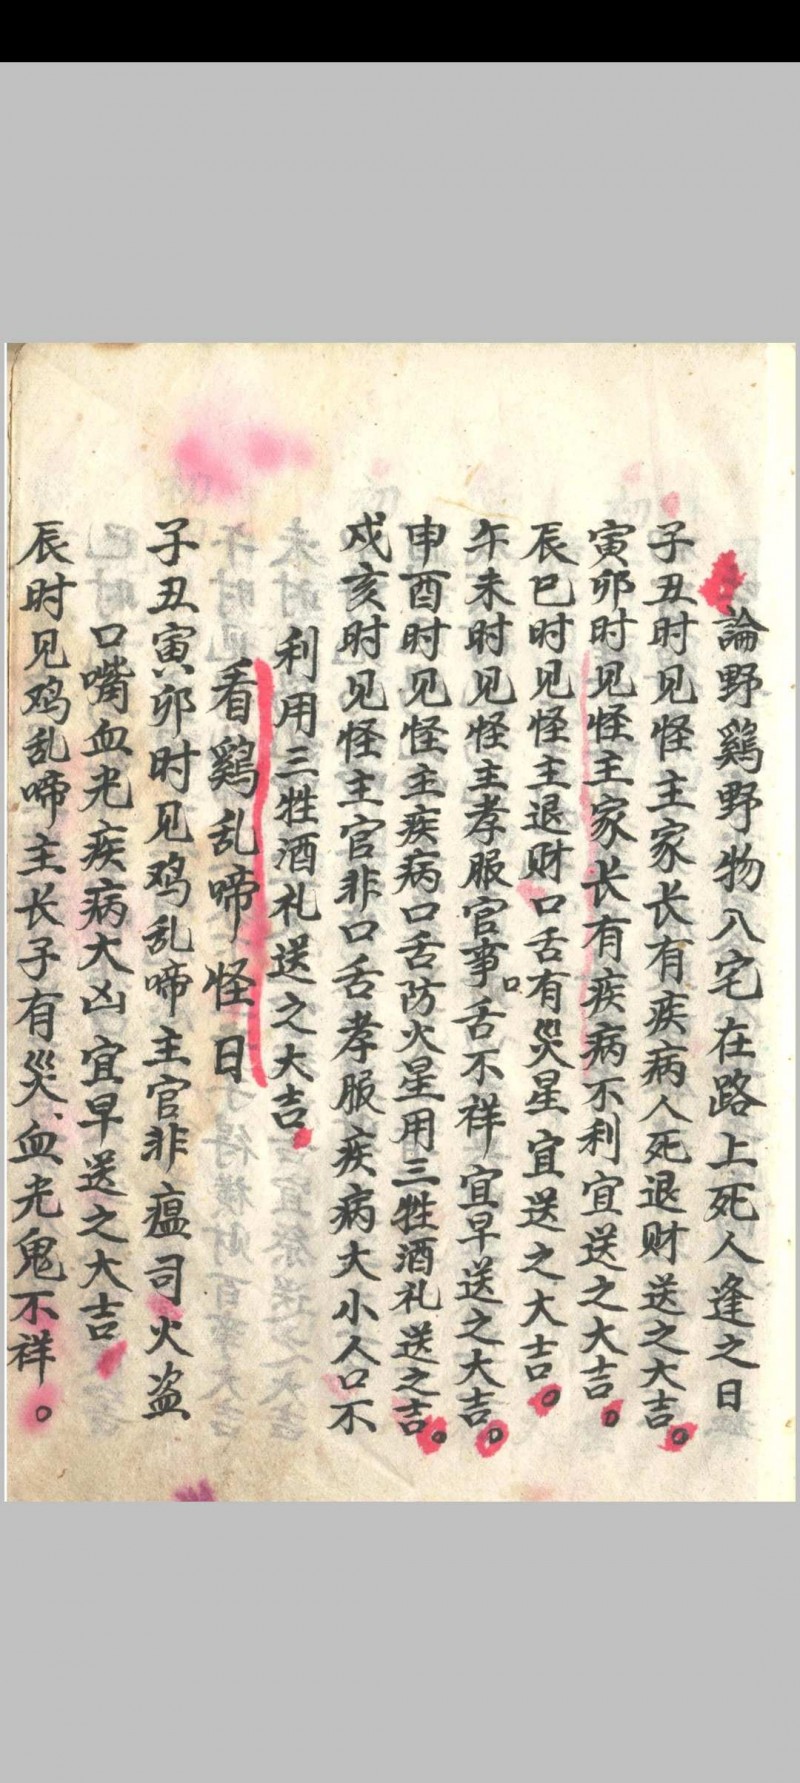 論野鷄野物入宅在路上死人逢之日
子丑时见怪主家长有疾病人死退财送之大吉。
寅卯时见怪主家长有疾病不利宜送之大吉。
辰巳时见怪主退财口舌有災星宜送之大吉。
午未时见怪主孝服官事口舌不祥宜早送之大吉。
申酉时见怪主疾病口舌防火星用三牲酒礼送之吉。
戍亥时见怪主官非口舌孝服疾病大小人口不
利用三牲酒礼送之大吉
看鷄乱啼怪日
子丑寅卯时见鸡乱啼主官非瘟司火盗
口嘴血光疾病大凶宜早送之大吉
辰时见鸡乱啼主长子有災血光鬼不祥。